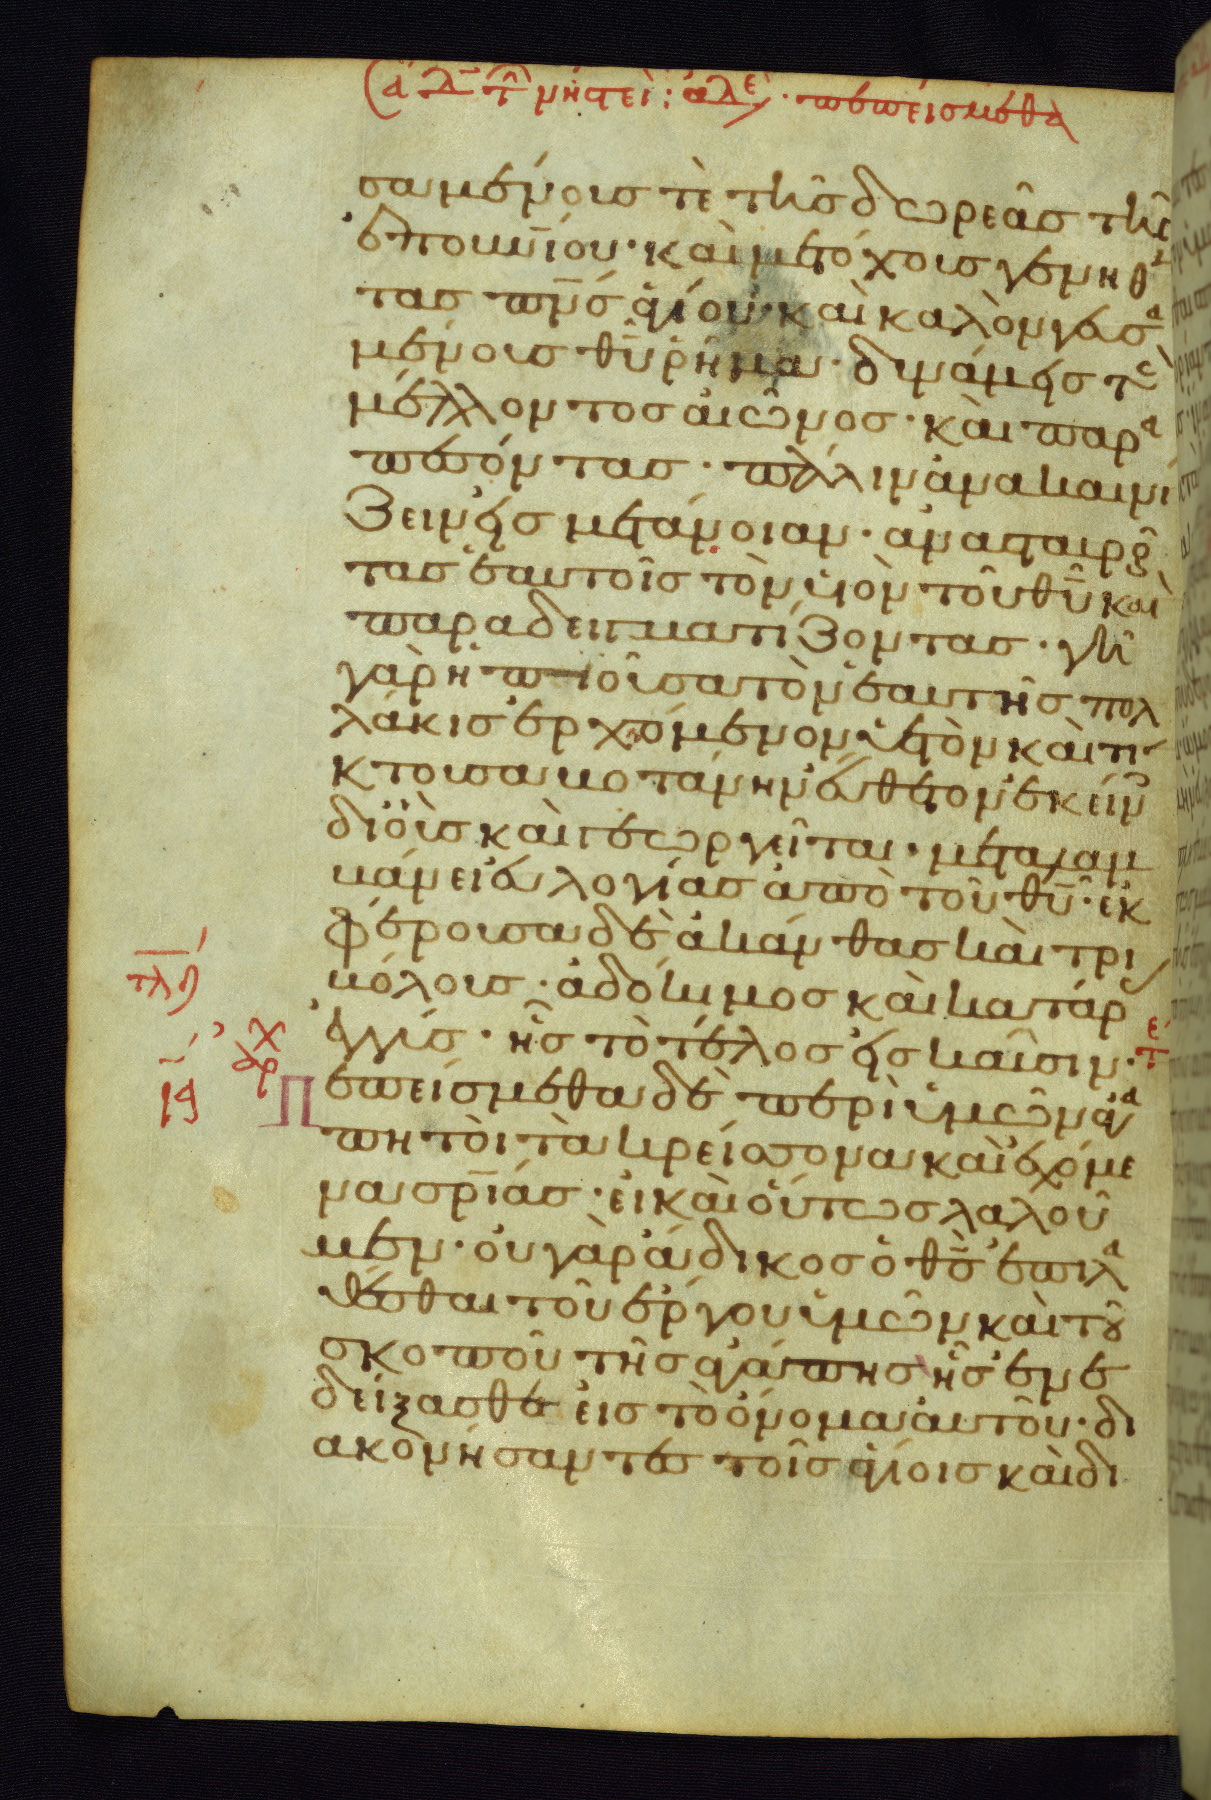 νηστει: ἀδελ. πεπεισμεθα
σαμένους τὲ τῆς δωρεᾶς τῆς
ἐπουνίου· καὶ μετόχους γενηθ
τας πνς ἁγίου· καὶ καλὸν γευσα
μένους θυ ῥῆμα· δυνάμεις τε
μέλλοντος αἰῶνος· καὶ παρα
πεσόντας· πάλιν ἀνακαινί
ζειν εἰς μετάνοιαν· ἀνασταυροῦ
τας ἑαυτοῖς τὸν υἱὸν τοῦ θυ καὶ
παραδειγματίζοντας· γῆ
γὰρ ἡ πιοῦσα τὸν ἐαυτῆς πολ
λάκις ἐρχόμενον ὑετὸν καὶ τί
κτουσα βοτάνην εὔθετον ἐκείν
δι' οὓς καὶ γεωργεῖται· μεταλαμ
βάνει εὐλογίας ἀπὸ τοῦ θυ· ἐκ
φέρουσα δὲ ἀκάνθας καὶ τρι
βόλους· ἀδόκιμος καὶ κατάρ
ἐγγύς· ἧς τὸ τέλος εἰς καῦσιν· τε
Πεπείσμεθα δὲ περὶ ὑμῶν ἀγα
πητοὶ τὰ κρείσσονα καὶ ἐχόμε
να σρίας· εἰ καὶ οὕτως λαλοῦ
μεν· οὐ γὰρ ἄδικος ὁ θς ἐπιλα
θέσθαι τοῦ ἔργου ὑμῶν καὶ τοῦ
σκοποῦ τῆς ἀγάπης ἧς ἐνε
δείξασθε εἰς τὸ ὄνομα αὐτοῦ· δι
ακονήσαντες τοῖς ἁγίοις καὶ δι